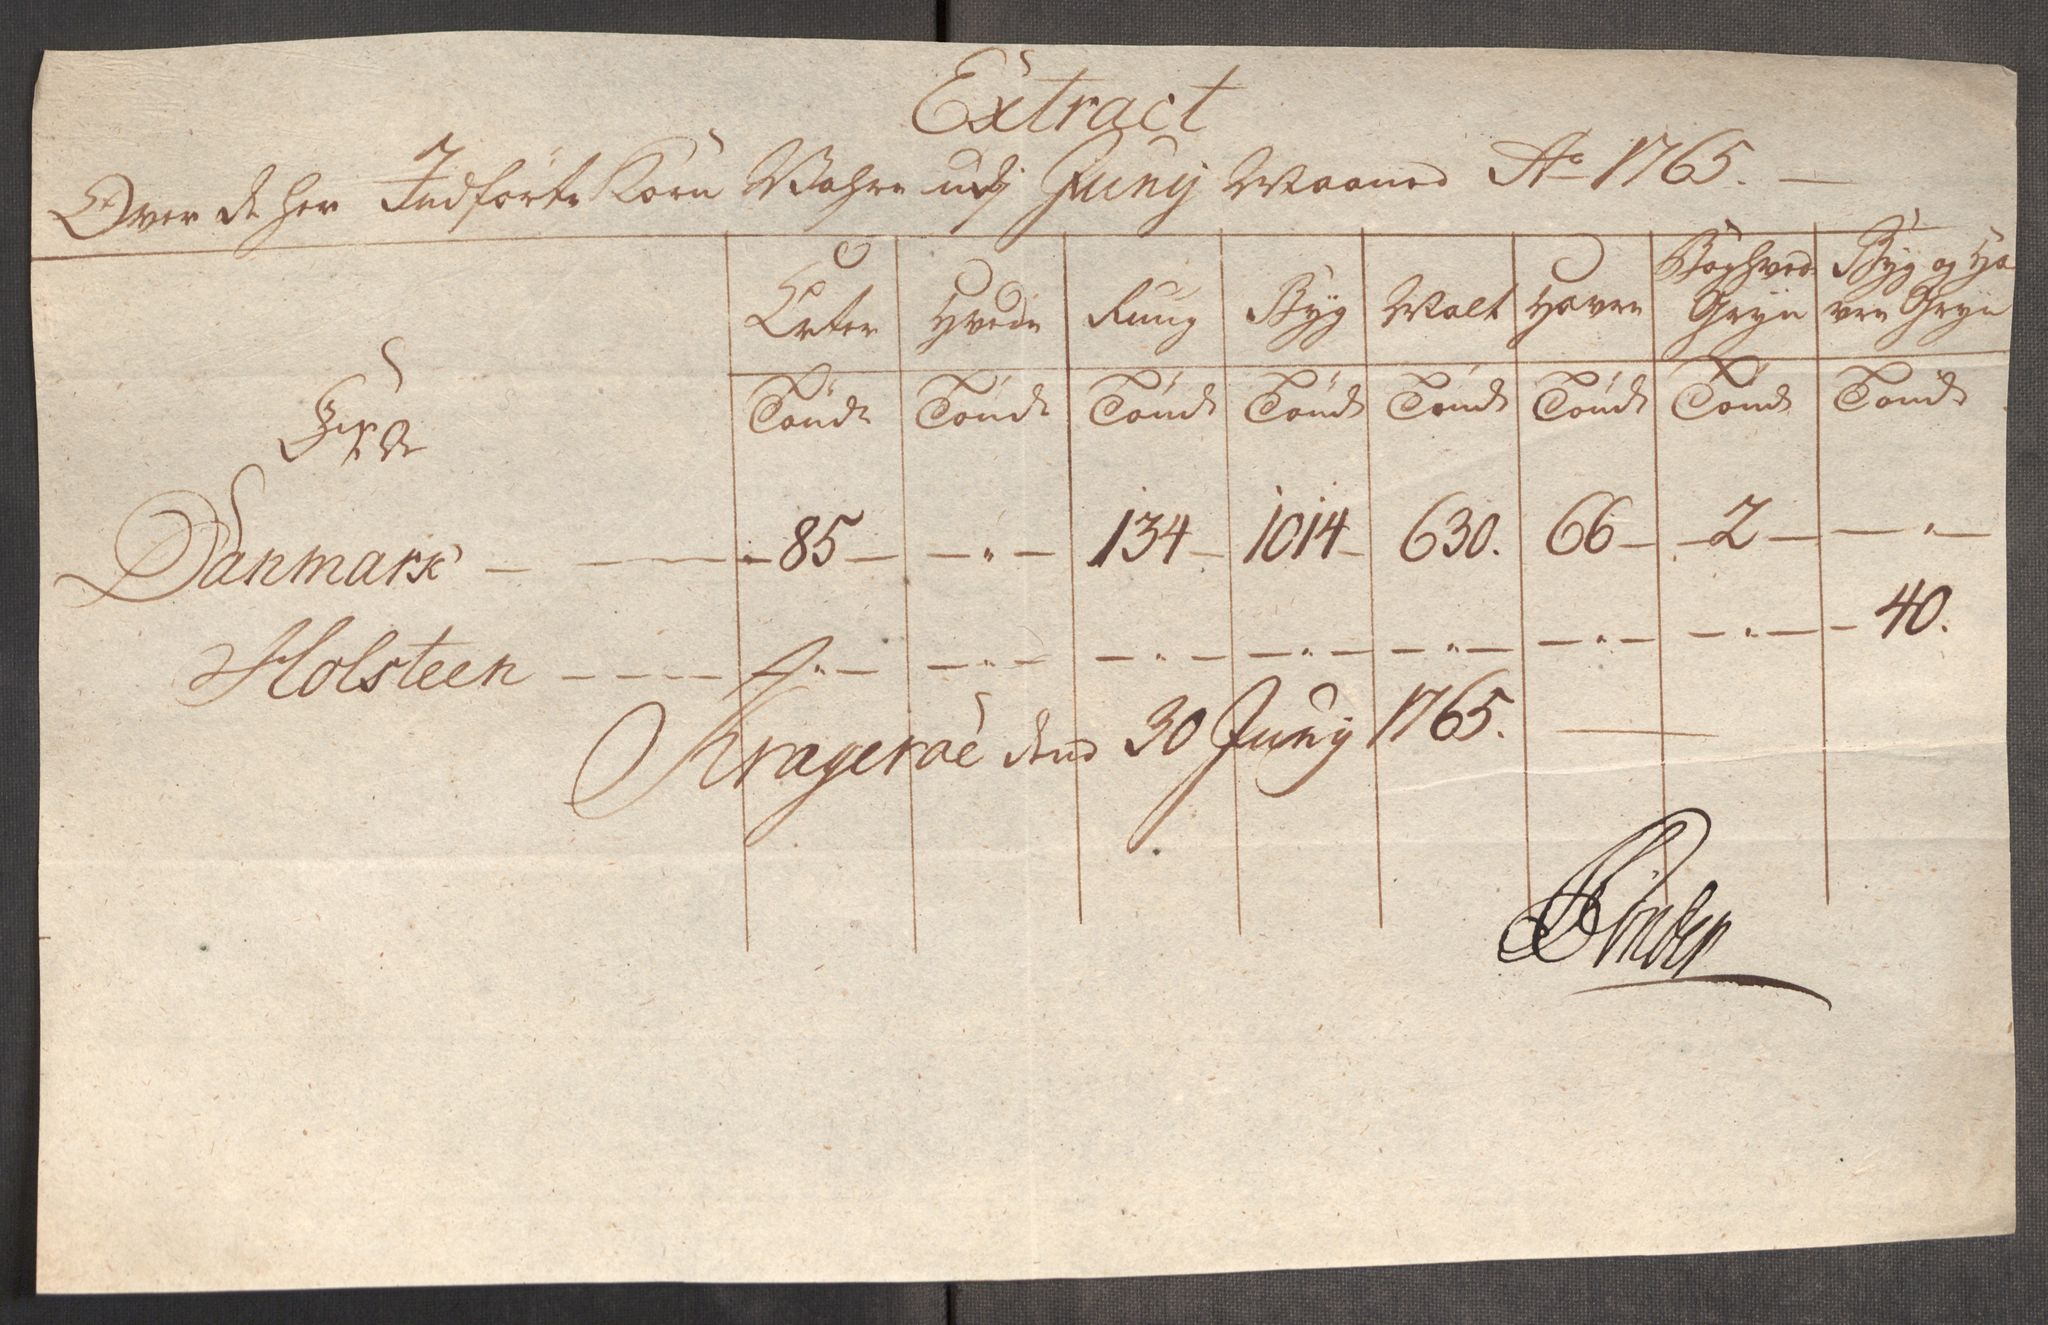 Extract
Over de her Indförte Korn Wahre udj Junij Maaned Ao 1765. —
Erter Hvede Rug Byg Malt Havre Boghvede Gryn Byg og Havre Gryn
Fra
Tönde Tönde Tönde Tönde Tönde Tönde Tönde Tönde
Danmark — — 85 — — " — 134 — 1014 — 630. 66 — — 2 — — " —
Holsteen — — — " — — " — — " — — " — — " — — " — — " — — 40.
Krageröe dend 30 Junij 1765. —